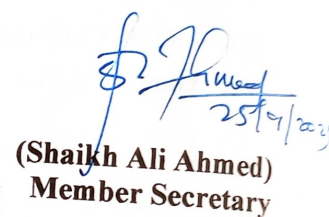 Ahmed
(Shaikh Ali Ahmed)
Member Secretary